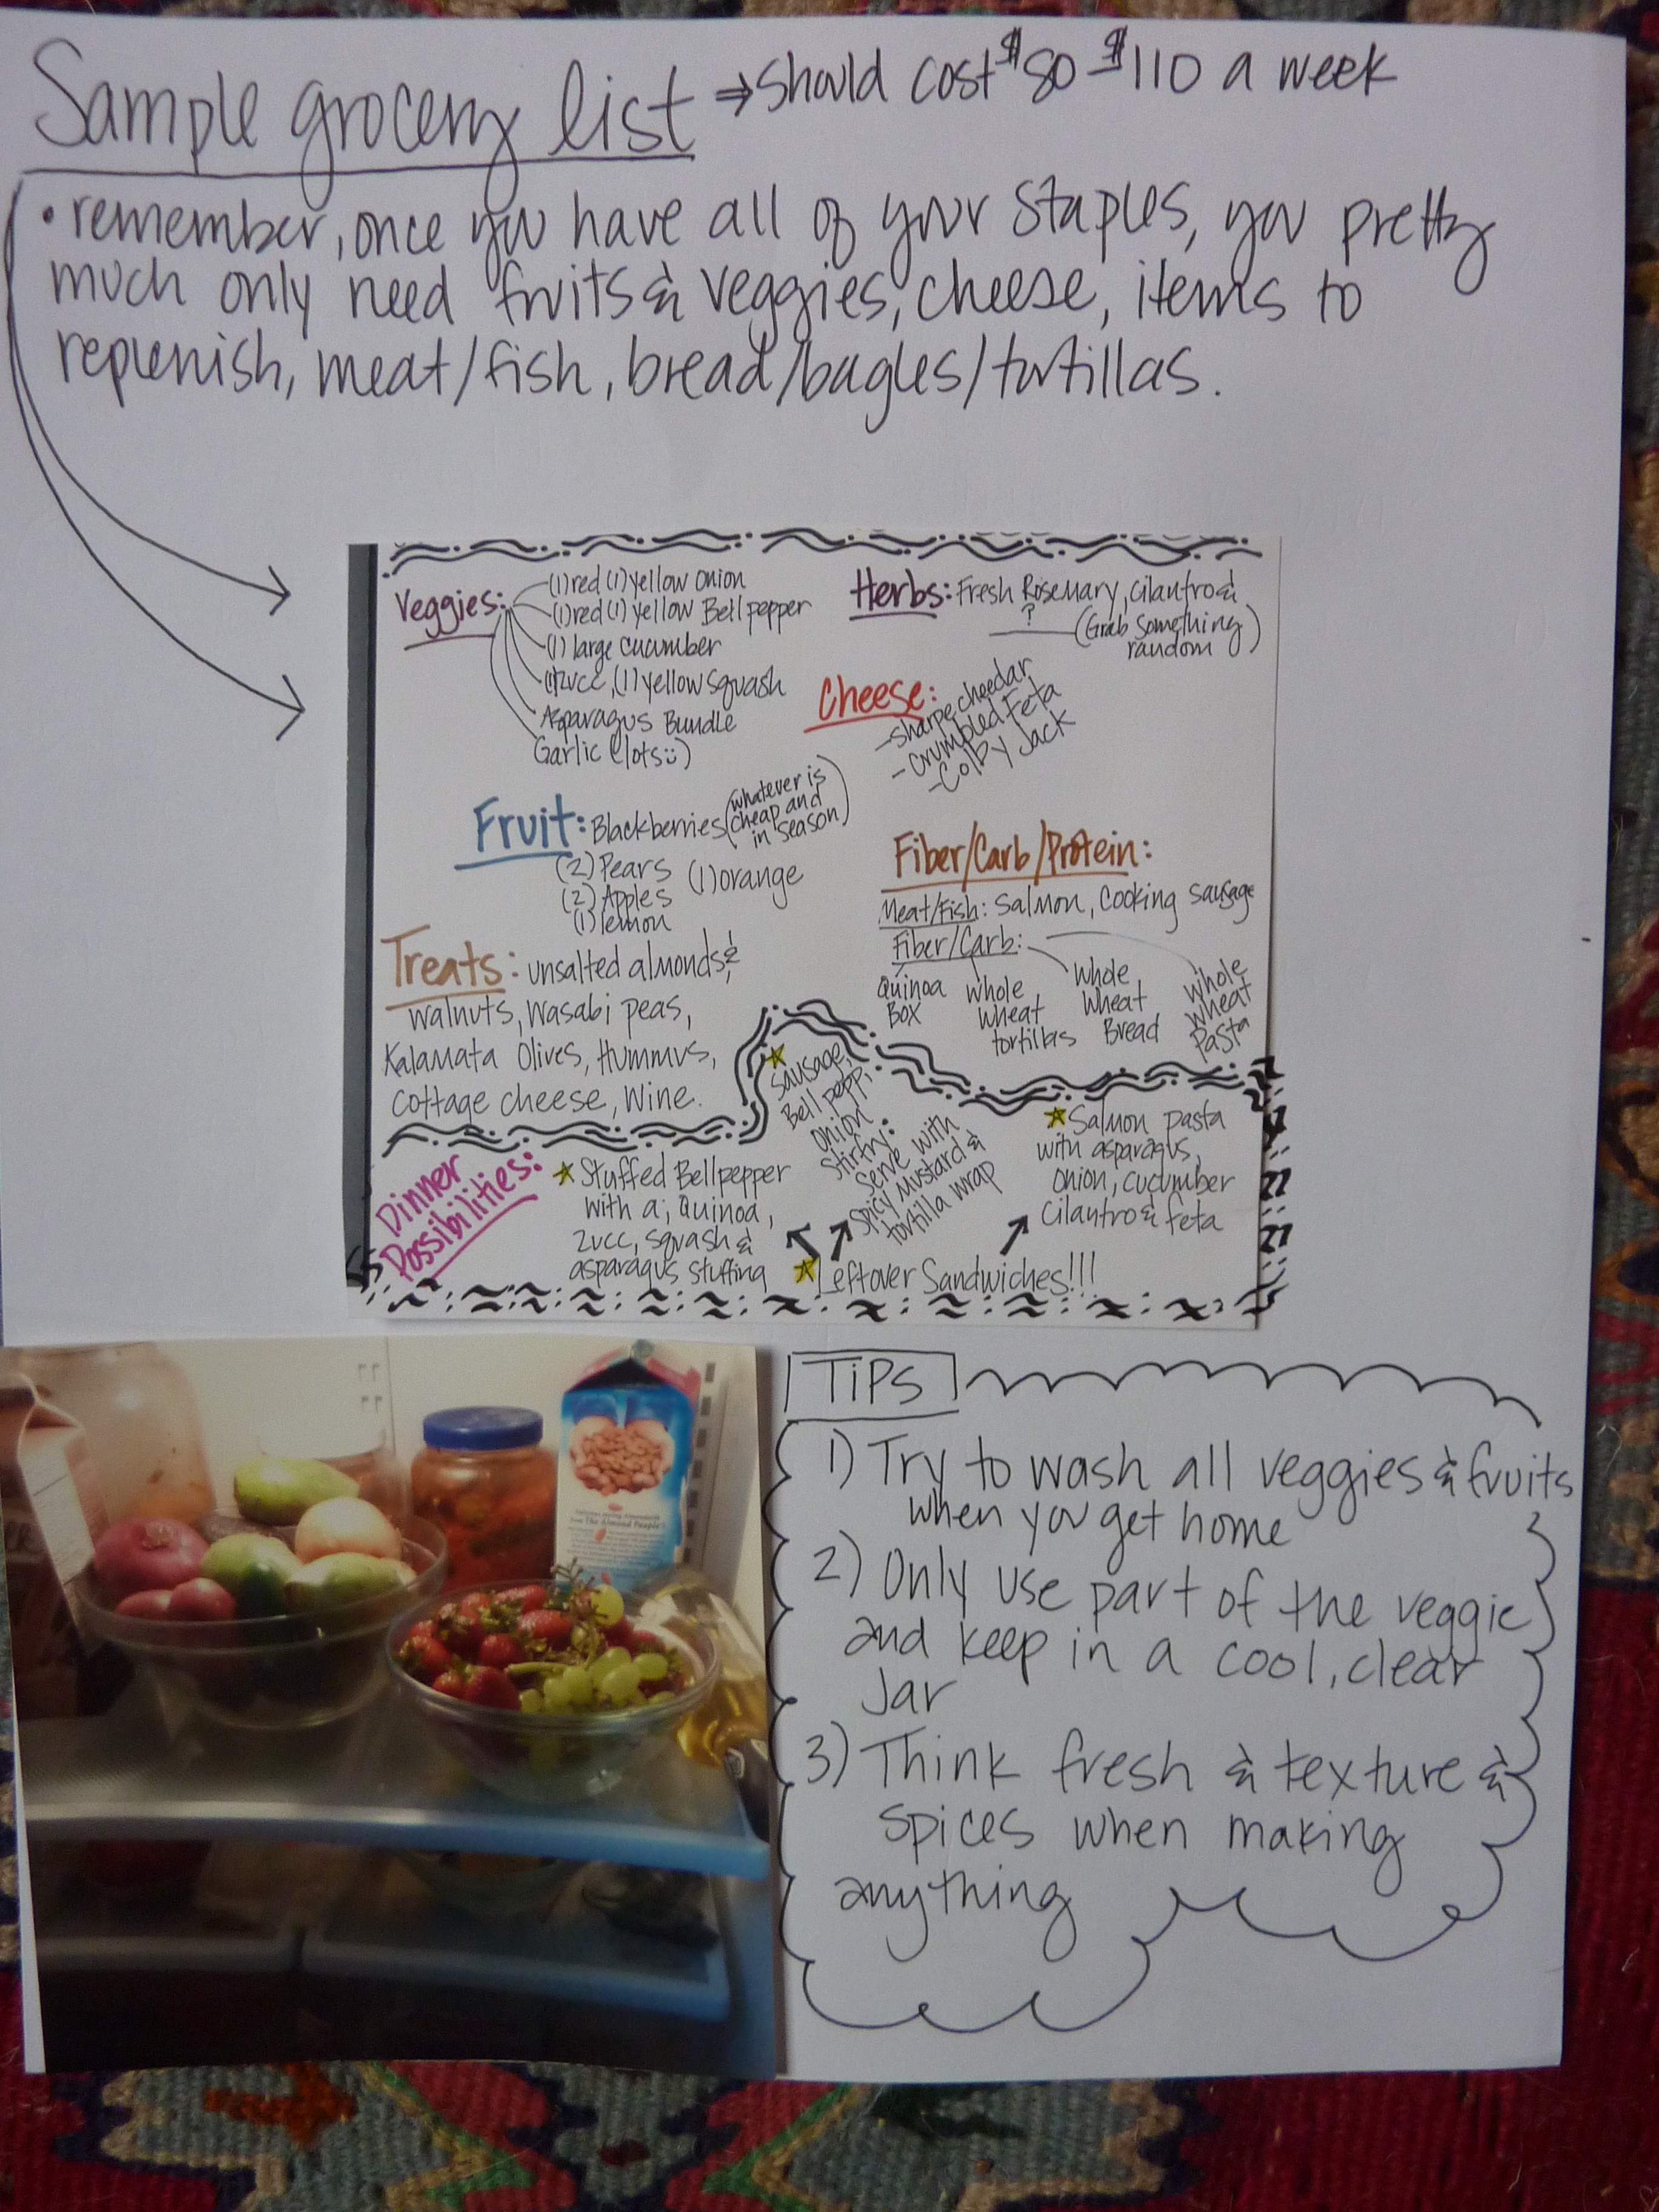 Sample grocery list ⇒ Should cost $80-$110 a week
• remember, once you have all of your staples, you pretty
much only need fruits & veggies, cheese, items to
replenish, meat/fish, bread/bagles/tortillas.
Veggies:
(1) red (1) yellow onion
(1) red (1) yellow Bell pepper
(1) large cucumber
(1) zucc, (1) yellow squash
Asparagus Bundle
Garlic (lots :))
Herbs: Fresh Rosemary, cilantro &
? (Grab something
random)
Cheese:
- sharpe cheedar
- crumbled Feta
- Colby Jack
Fruit: Blackberries (whatever is
cheap and
in season)
(2) Pears (1) orange
(2) Apples
(1) lemon
Fiber/Carb/Protein:
Meat/Fish: Salmon, Cooking sausage
Fiber/Carb:
Quinoa
Box
whole
wheat
tortillas
whole
wheat
Bread
whole
wheat
Pasta
Treats: unsalted almonds &
walnuts, wasabi peas,
Kalamata Olives, Hummus,
cottage cheese, Wine.
Dinner
Possibilities:
Stuffed Bellpepper
with a; Quinoa,
zucc, squash &
asparagus stuffing
Sausage,
Bell pepp,
onion
stirfry:
Serve with
spicy mustard &
tortilla wrap
Salmon pasta
with asparagus,
onion, cucumber
cilantro & feta
Leftover Sandwiches!!!
The Almond People
TiPs
1) Try to wash all veggies & fruits
when you get home
2) Only use part of the veggie
and keep in a cool, clear
Jar
3) Think fresh & texture &
spices when making
anything